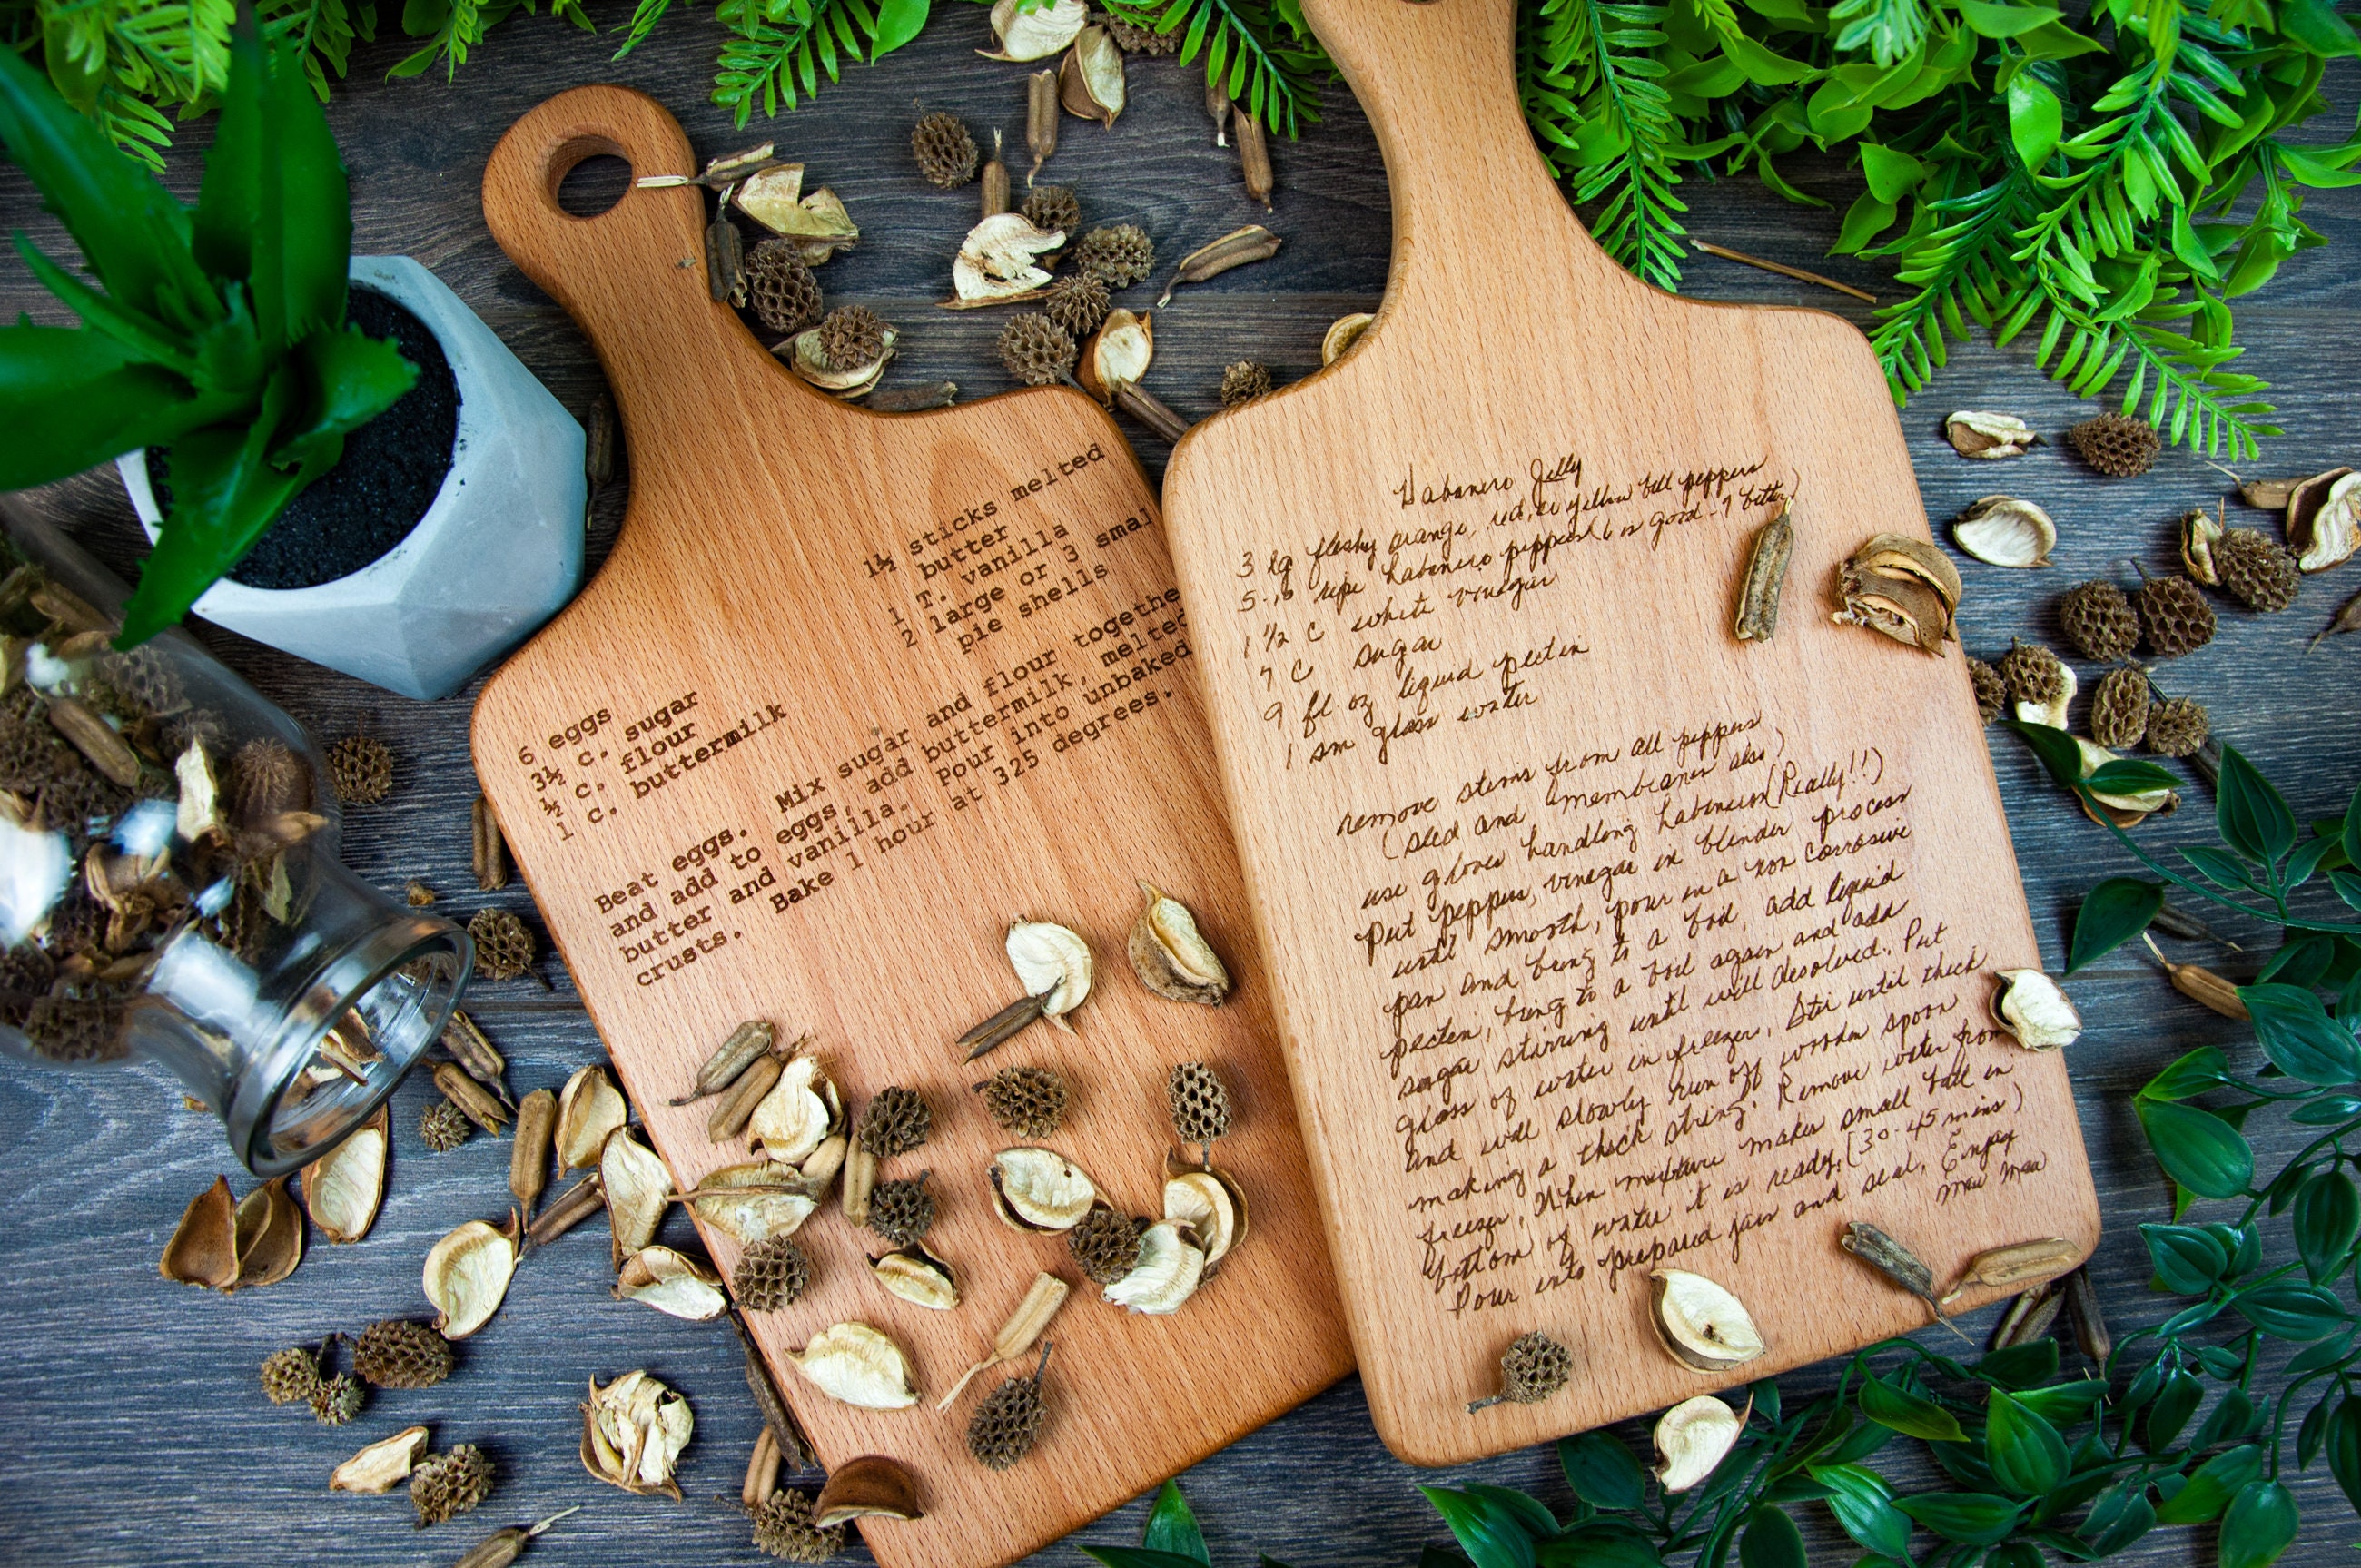 1½ sticks melted
butter
1 T. vanilla
2 large or 3 smal
pie shells
6 eggs
3½ c. sugar
½ c. flour
1 c. buttermilk
Beat eggs. Mix sugar and flour togethe
and add to eggs, add buttermilk, melted
butter and vanilla. Pour into unbaked
crusts. Bake 1 hour at 325 degrees.
Habanero Jelly
3 lg fleshy orange, red, or yellow bell peppers
5-10 ripe habanero peppers (6 is good - 7 better)
1 1/2 c white vinegar
7 c sugar
9 fl oz liquid pectin
1 sm glass water
remove stems from all peppers
(seed and membranes also)
use gloves handling habaneros (Really!!)
Put peppers, vinegar in blender process
until smooth, pour in a non corrosive
pan and bring to a boil, add liquid
pectin, bring to a boil again and add
sugar stirring until well desolved. Put
glass of water in freezer. Stir until thick
and will slowly run off wooden spoon
making a thick string. Remove water from
freezer. When mixture makes small ball in
bottom of water it is ready. (30-45 mins)
Pour into prepared jars and seal, Enjoy
Maw Maw